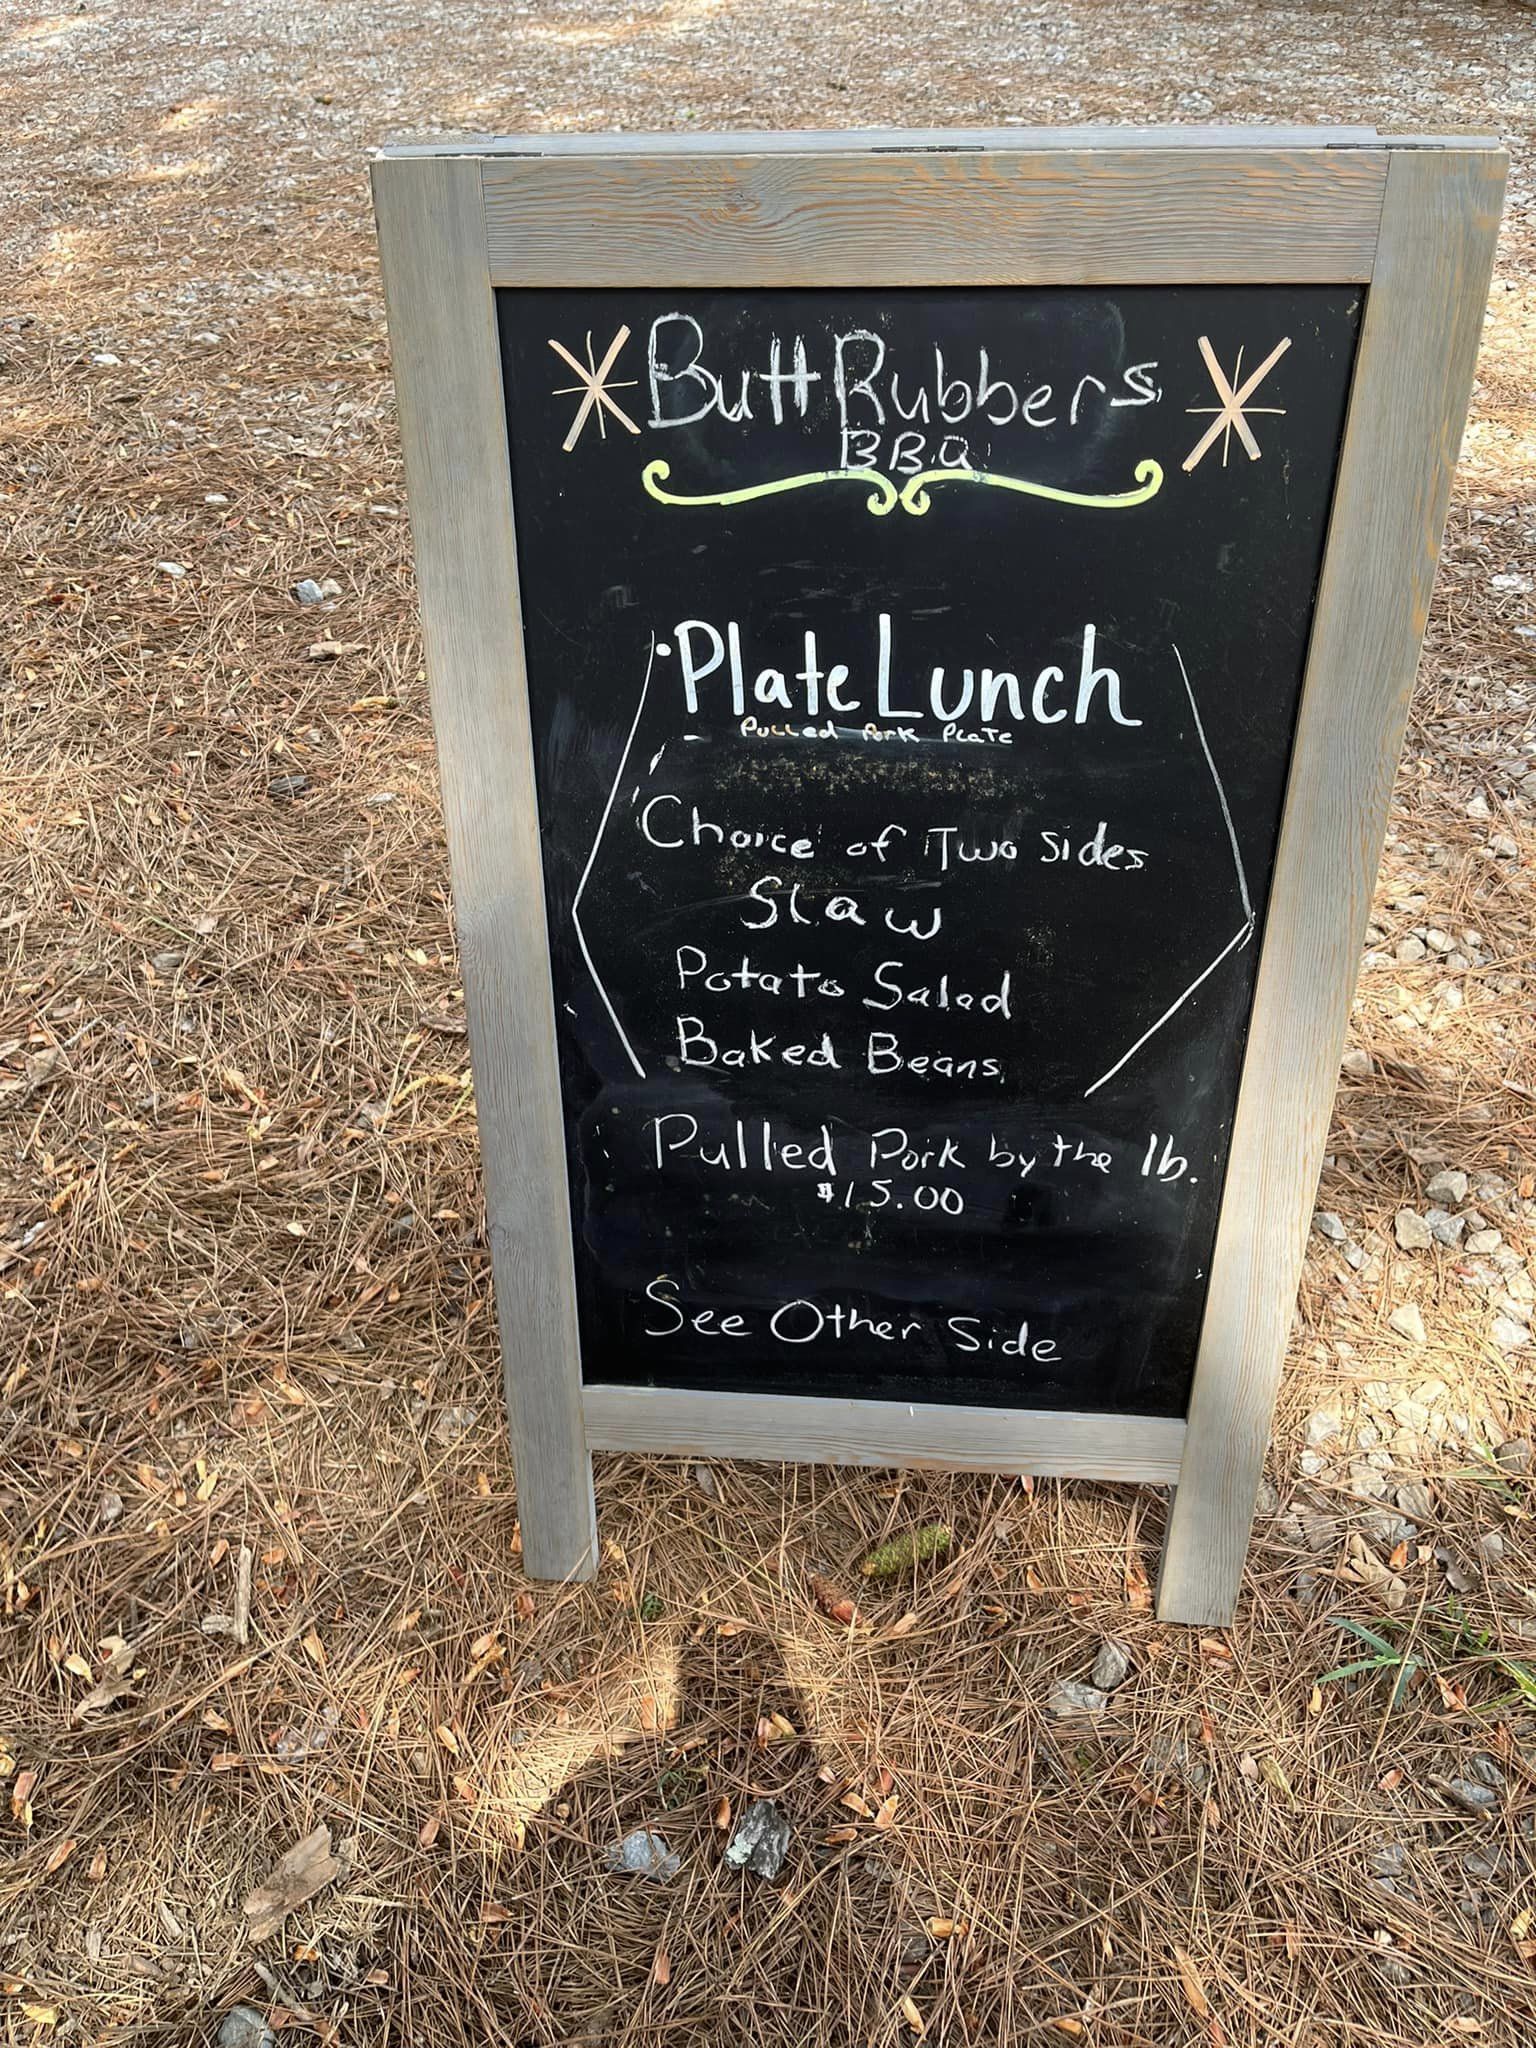 Butt Rubbers
BBQ
Plate Lunch
Pulled Pork Plate
Choice of Two Sides
Slaw
Potato Salad
Baked Beans
Pulled Pork by the lb.
$15.00
See Other Side